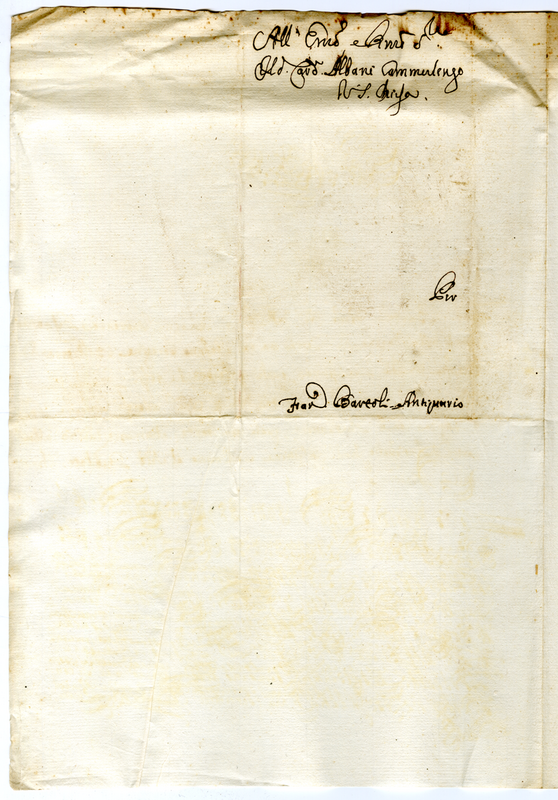 All' Emo e Rmo Sr
Il Sigr Card. Albani Cammerlengo
di S. Chiesa.
Per
Franco Bartoli Antiquario